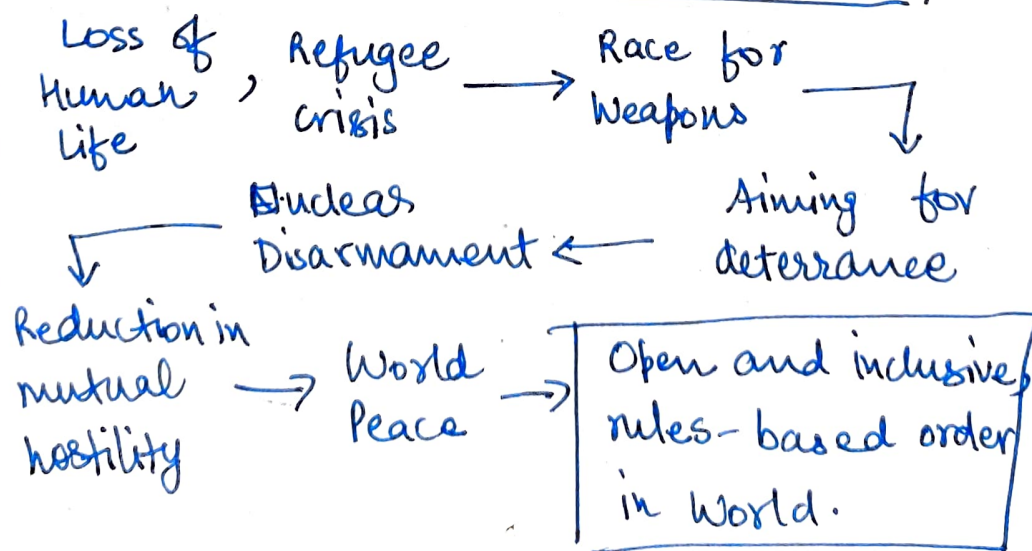 Loss of
Human ,
Life
Refugee
crisis
→
Race for
Weapons
Aiming for
deterrance
←
Nuclear
Disarmament
Reduction in
mutual
hostility
→
World
Peace
→
Open and inclusive,
rules-based order
in World.